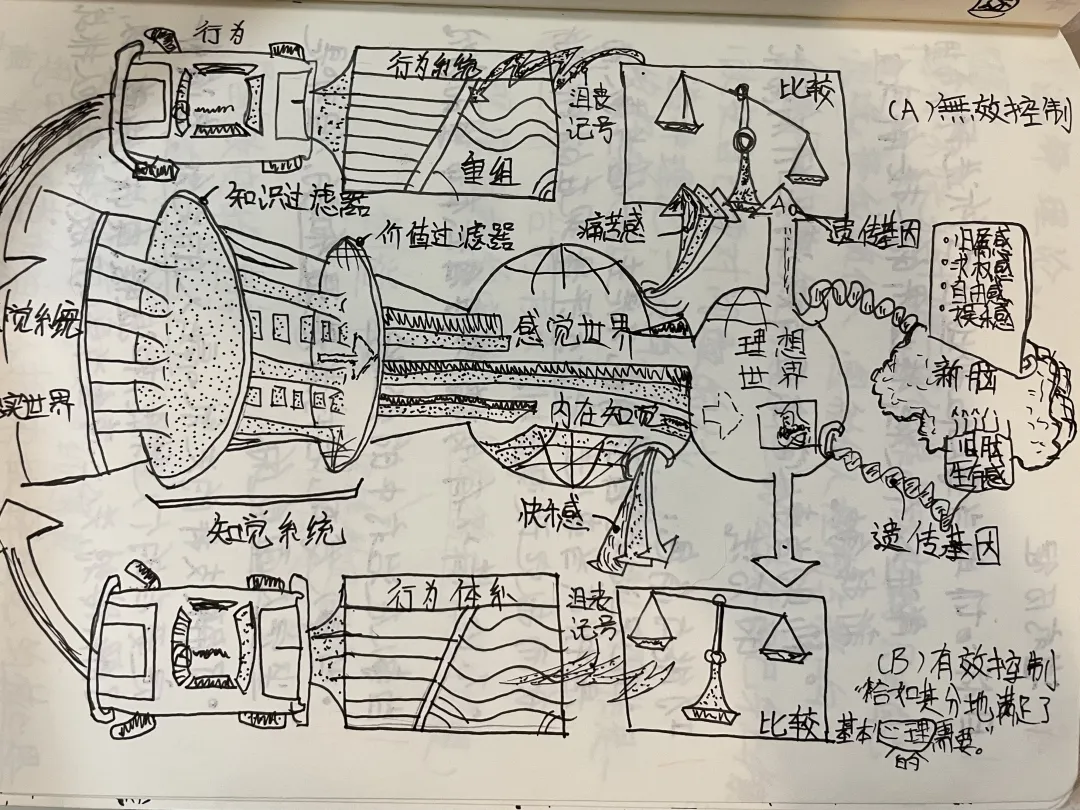 行为
行为系统
重组
沮丧
记号
比较
(A)無效控制
知识过滤器
价值过滤器
痛苦感
遗传基因
·归属感
·求权感
·自由感
·娱乐感
觉系统
感觉世界
理想
世界
新脑
实世界
内在知觉
旧脑
生存感
知觉系统
快乐感
遗传基因
行为体系
沮丧
记号
比较
(B)有效控制
“恰如其分地满足了
基本心理需要。”
的